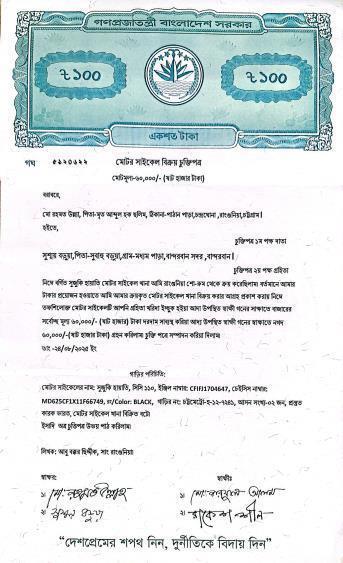 গণপ্রজাতন্ত্রী বাংলাদেশ সরকার
৳১০০ ৳১০০
একশত টাকা
গঘ ৫৯২০৬২২ মোটর সাইকেল বিক্রয় চুক্তিপত্র
মোটমূল্য-৬০,০০০/- (ষাট হাজার টাকা)
বরাবরে,
মো রহমত উল্লা, পিতা-মৃত আব্দুল হক ছলিম, ঠিকানা-পাঠান পাড়া,চন্দ্রঘোনা,রাংগুনিয়া,চট্টগ্রাম।
হইতে,
চুক্তিপত্র ১ম পক্ষ দাতা
সুস্ময় বড়ুয়া, পিতা-সুবাহু বড়ুয়া,গ্রাম-মধ্যম পাড়া,বান্দরবান সদর,বান্দরবান।
চুক্তিপত্র ২য় পক্ষ গ্রহিতা
নিম্নে বর্ণিত সুজুকি হায়াতি মোটর সাইকেল খানা আমি রাংগুনিয়া শো-রুম থেকে ক্রয় করেছিলাম। বর্তমানে আমার
টাকার প্রয়োজন হওয়াতে আমি আমার ক্রয়কৃত মোটর সাইকেল খানা বিক্রয় করার আগ্রহ প্রকাশ করায় নিম্নে
তফশিলোক্ত মোটর সাইকেলটি আপনি গ্রহিতা খরিদা ইচ্ছুক হইয়া অদ্য উপস্থিত স্বাক্ষী গনের সাক্ষাতে বাজারের
সর্বোচ্চ মূল্য ৬০,০০০/- (ষাট হাজার) টাকা দরদাম সাব্যস্থ করিয়া অদ্য উপস্থিত স্বাক্ষী গনের স্বাক্ষাতে নগদ
৬০,০০০/-(ষাট হাজার টাকা) গ্রহন করিলাম চুক্তি পত্রে সম্পাদন করিয়া দিলাম।
তাং -২৪/০৮/২০২৫ ইং
গাড়ির পরিচিতি:
মোটর সাইকেলের নাম: সুজুকি হায়াতি, সিসি ১১০, ইঞ্জিন নাম্বার: CFIFJ1704647, চেইসিস নাম্বার:
MD625CF1X11F66749, রং/Color: BLACK, গাড়ির নং: চট্টমেট্রো-হ-১২-৭২৪১, আসন সংখ্যা-০২ জন, প্রস্তুত
কারক ভারত, মোটর সাইকেল খানা বিক্রিত বটে।
ইসাদি অত্র চুক্তিপত্র উভয় পাঠ করিলাম।
লিখক: আবু বক্কর ছিদ্দীক, সাং রাংগুনিয়া।
স্বাক্ষীঃ স্বাক্ষীঃ
১। মো: রহমত উল্লাহ ১।
২। সুস্ময় বড়ুয়া ২।
“দেশপ্রেমের শপথ নিন, দুর্নীতিকে বিদায় দিন”